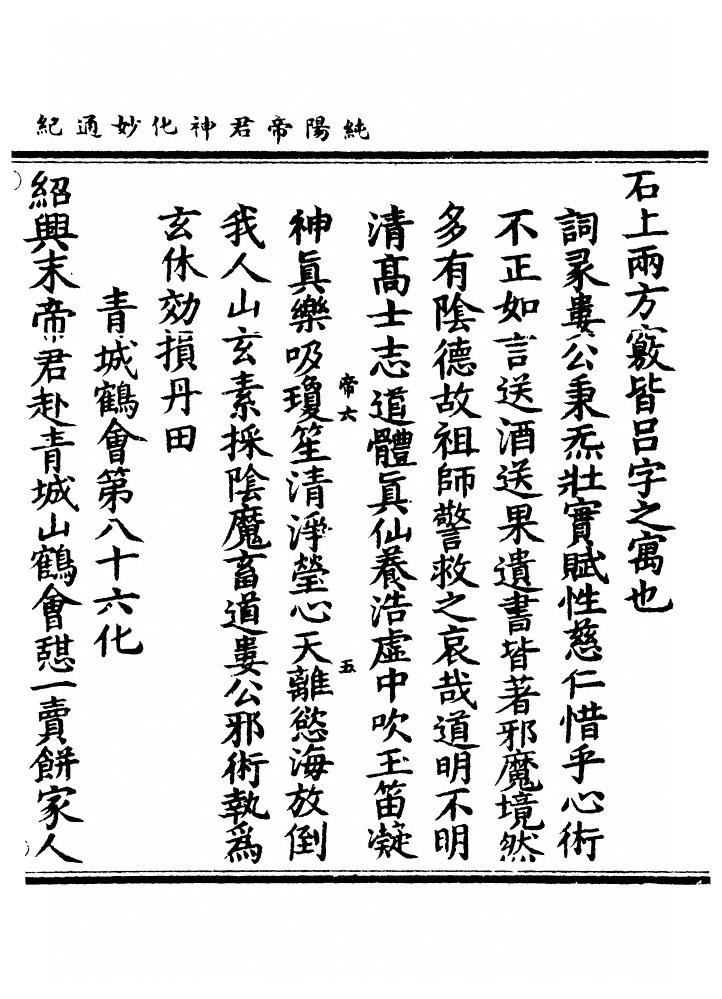 純陽帝君神化妙通紀
石上兩方竅皆呂字之寓也
詞彔婁公秉炁壯實賦性慈仁惜乎心術
不正如言送酒送果遺書皆著邪魔境然
多有陰德故祖師警救之哀哉道明不明
清高士志道體真仙養浩虛中吹玉笛凝
帝六
五
神真樂吸瓊笙清淨瑩心天離慾海放倒
我人山玄素採陰魔畜道婁公邪術執爲
玄休効損丹田
青城鶴會第八十六化
紹興末帝君赴青城山鶴會憇一賣餅家人